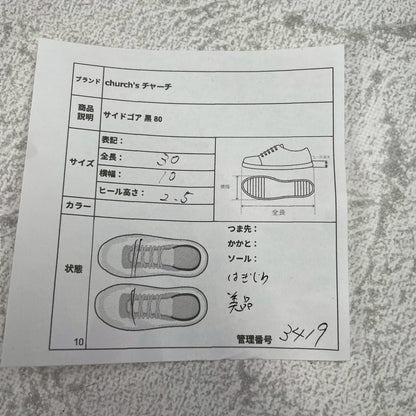 ブランド church's チャーチ
商品説明 サイドゴア 黒 80
サイズ
表記：
全長： 30
横幅： 10
ヒール高さ： 2.5
ヒール高さ
横幅
全長
カラー
状態
つま先：
かかと：
ソール：
はきじわ
美品
10
管理番号 3419